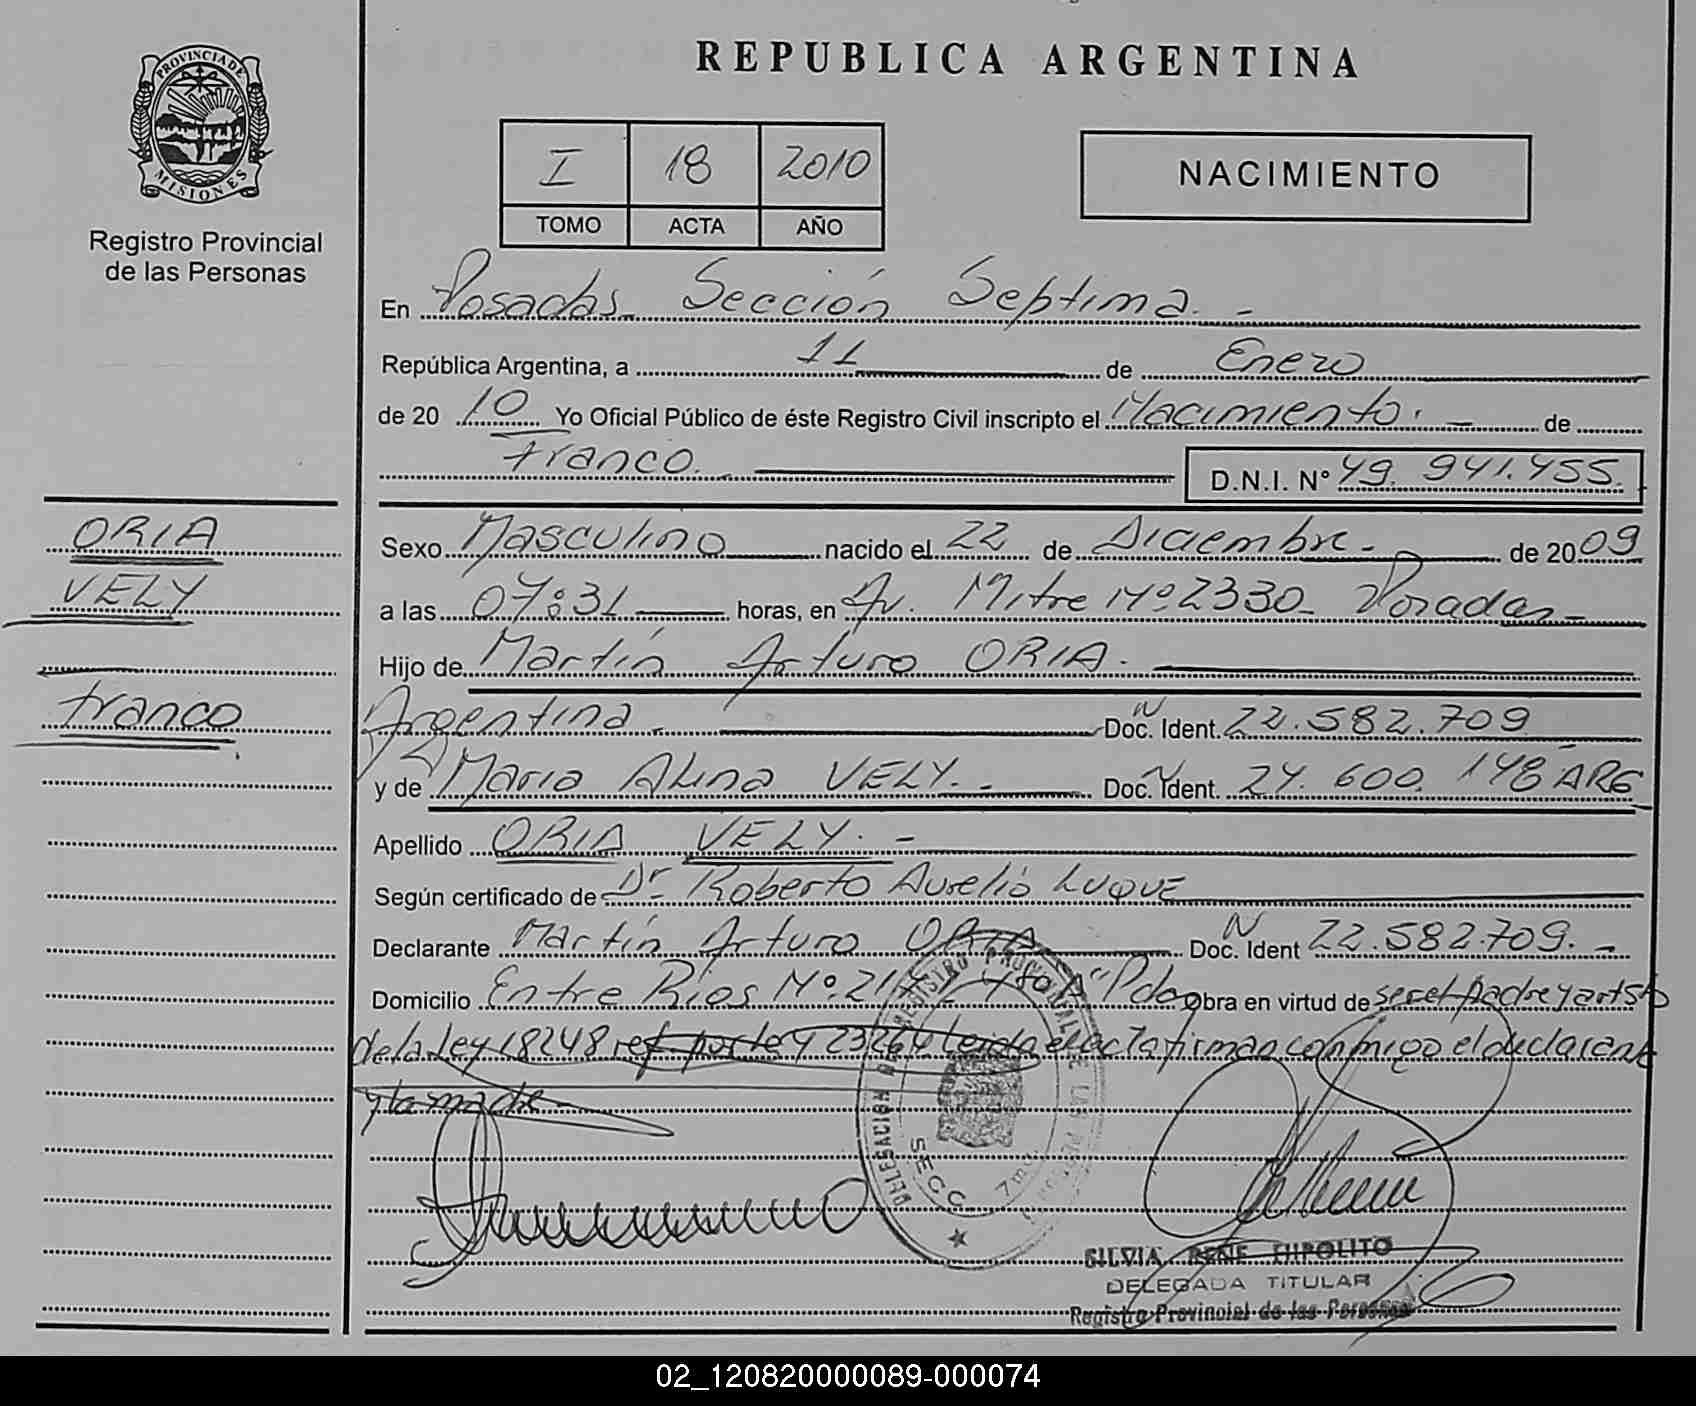 REPUBLICA ARGENTINA
PROVINCIA DE
MISIONES
Registro Provincial
de las Personas
I 18 2010
TOMO ACTA AÑO
NACIMIENTO
En Posadas Sección Septima. -
República Argentina, a 11 de Enero
de 20 10 Yo Oficial Público de éste Registro Civil inscripto el Nacimiento. - de
Franco. D.N.I. N° 49. 941.455.
ORIA
VELY
Franco
Sexo Masculino nacido el 22 de Diciembre - de 2009
a las 07:31 horas, en Av. Mitre Nº 2330 - Posadas -
Hijo de Martín Arturo ORIA. -
Argentina. - Doc. Ident. 22.582.709
y de Maria Alina VELY. - Doc. Ident. 24. 600. 148 ARG
Apellido ORIA VELY. -
Según certificado de Dr. Roberto Aurelio LUQUE
Declarante Martín Arturo ORIA Doc. Ident 22.582.709. -
Domicilio Entre Ríos Nº Pdas Obra en virtud de ser el padre y art 5to
de la Ley 18248 ref por ley 23264 Leida el acta firman conmigo el declarante
y la madre -
DELEGACION REGISTRO PROVINCIAL DE LAS PERSONAS
SECC. 7ma.
SILVIA RENE HIPOLITO
DELEGADA TITULAR
Registro Provincial de las Personas
02_120820000089-000074